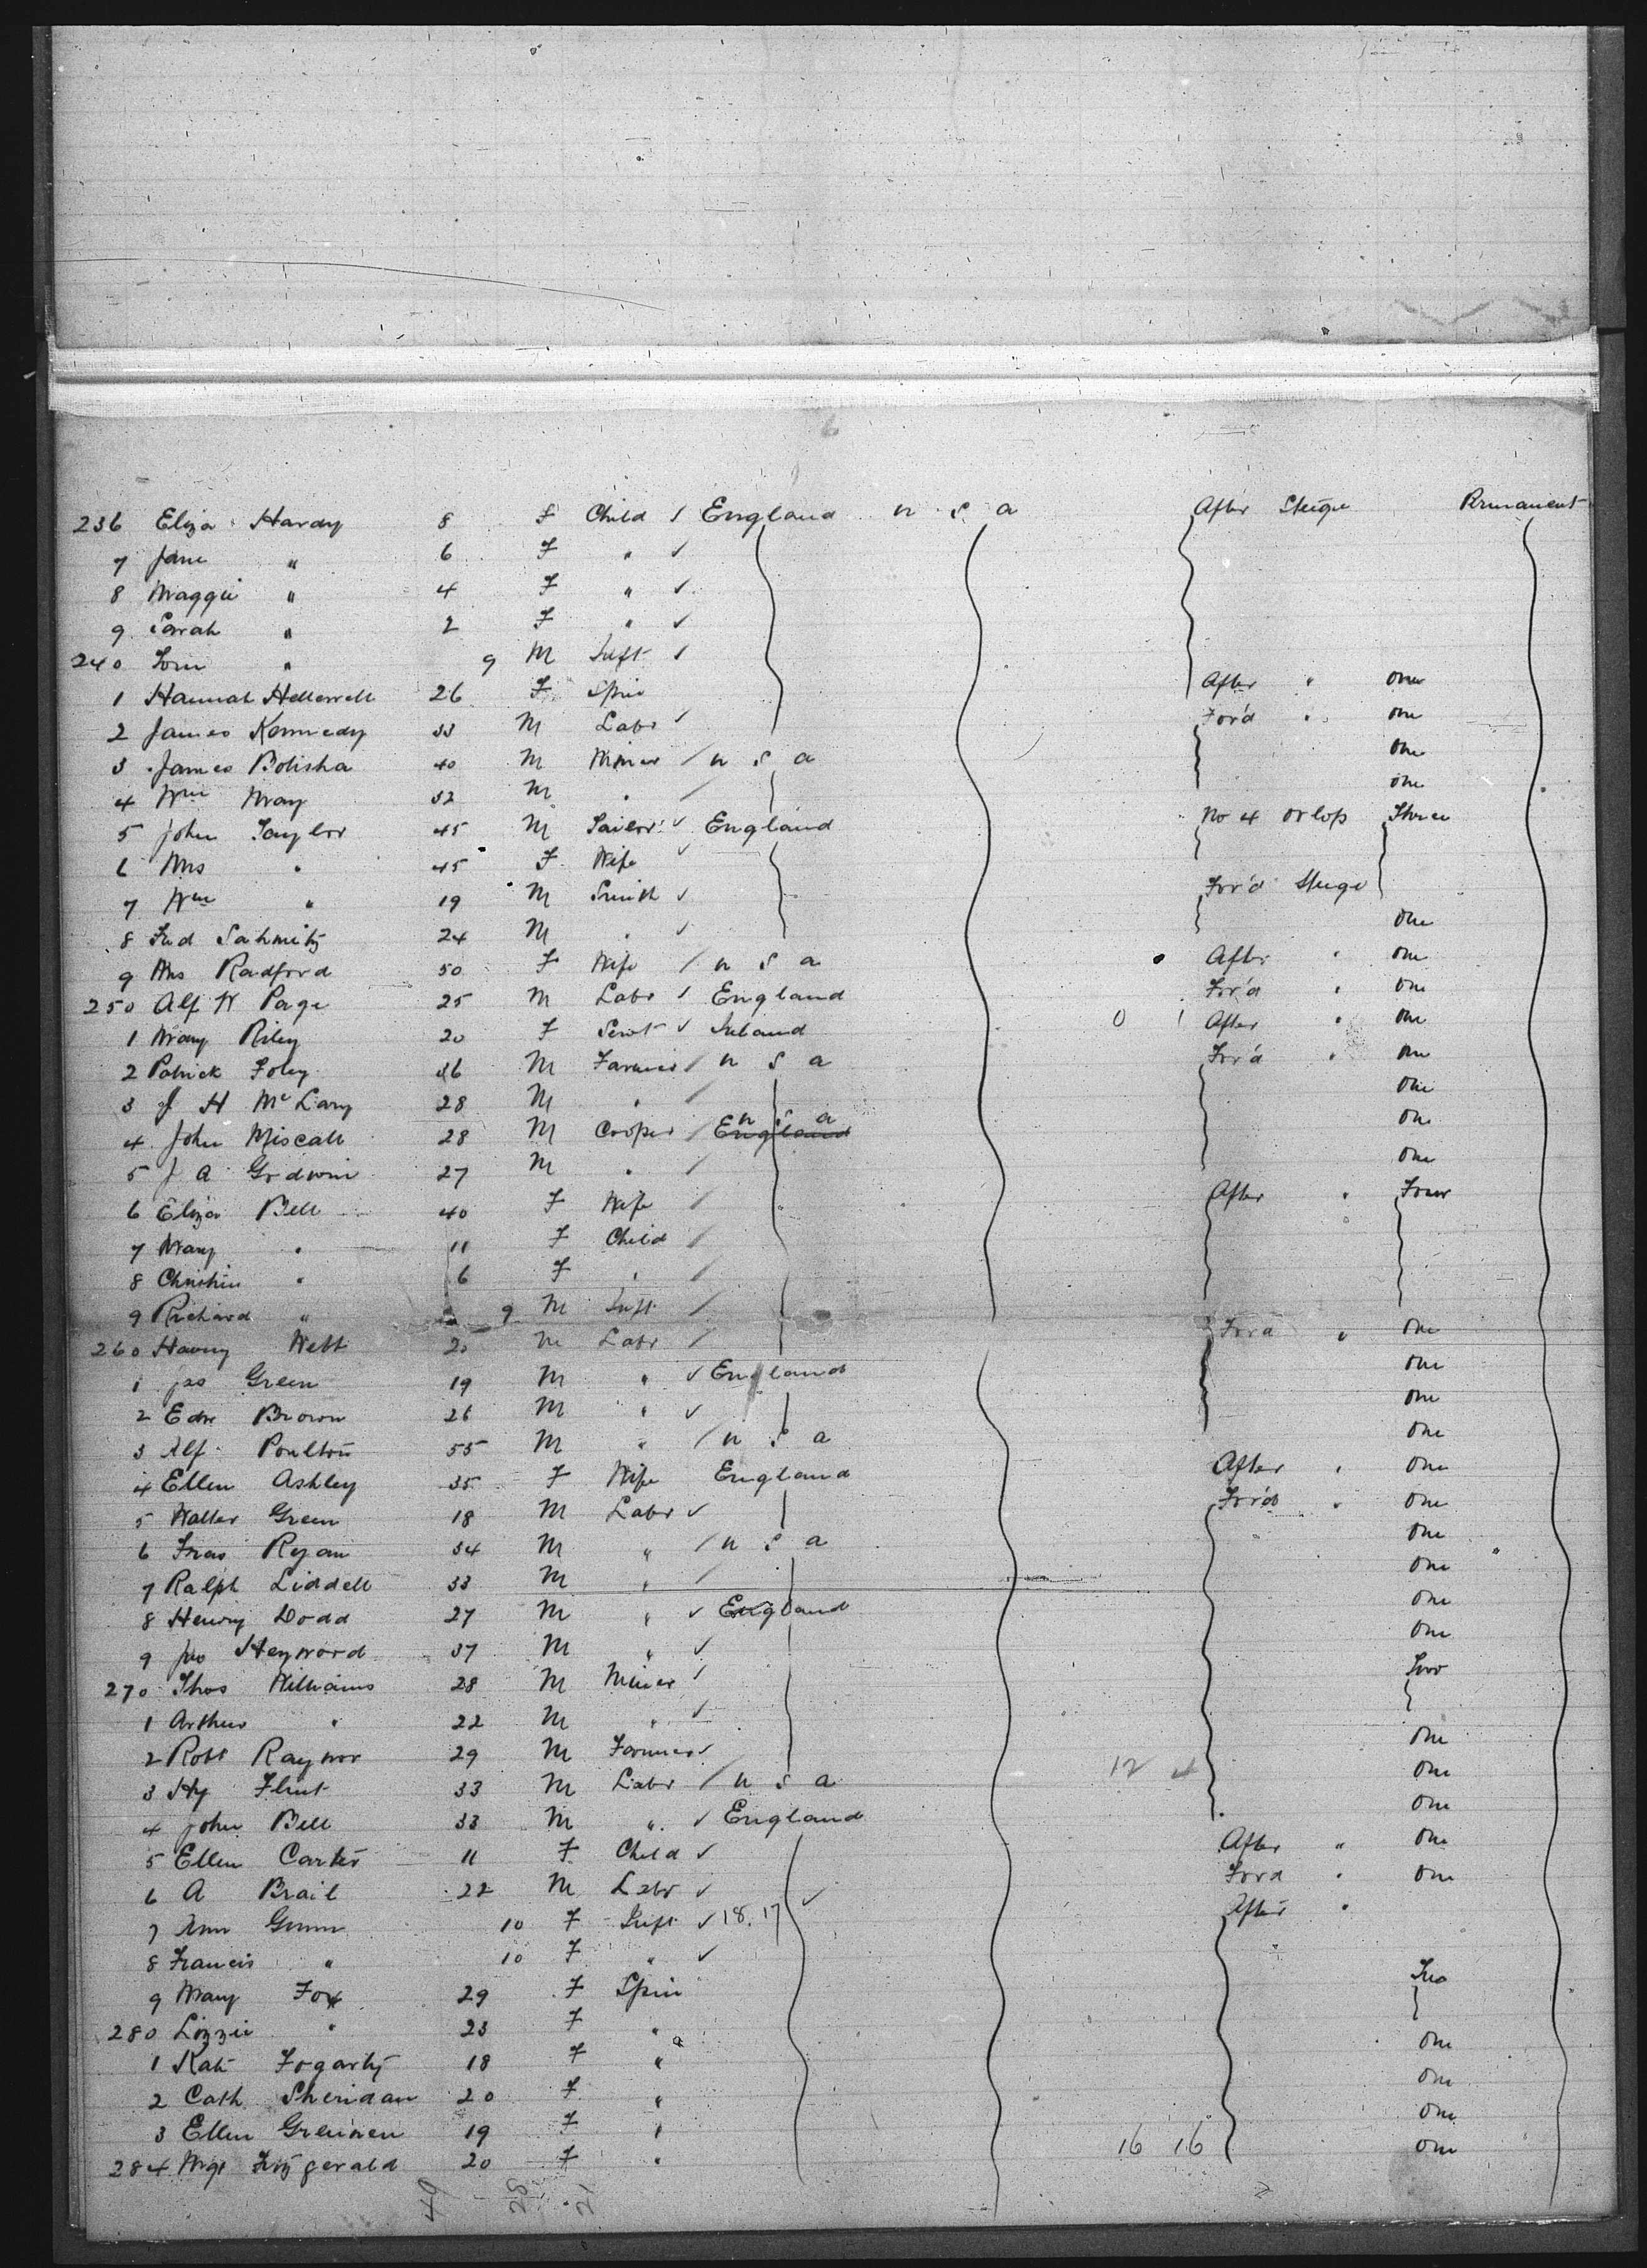 236 Eliza Hardy 8 F Child / England u s a After Steige Permanent
7 Jane " 6 F " ✓
8 Maggie " 4 F " ✓
9 Sarah " 2 F " ✓
240 Tom " 9 M Inft ✓
1 Hannah Hellewell 26 F Spin After " one
2 James Kennedy 33 M Labr ✓ For'd " one
3 James Bolisha 40 M Miner / u s a one
4 Wm May 32 M " / one
5 John Taylor 45 M Tailor ✓ England No 4 orlop Three
6 Mrs " 45 F Wife ✓
7 Wm " 19 M Smith ✓ For'd Steige
8 Fred Sahmitz 24 M " ✓ one
9 Mrs Radford 50 F Wife / u s a After " one
250 Alf W Page 25 M Labr ✓ England For'd " one
1 Mary Riley 20 F Servt ✓ Ireland 0 1 After " one
2 Patrick Foley 36 M Farmer / u s a For'd " one
3 J H McLary 28 M " / one
4 John Miscall 28 M Cooper / England u s a one
5 J A Godwin 27 M " / one
6 Eliza Bell 40 F Wife / After " Four
7 Mary " 11 F Child /
8 Christin " 6 F " /
9 Richard " 9 M Inft /
260 Harry Webb 2 M Labr / Ford " one
1 Jas Green 19 M " ✓ England one
2 Edw Brown 26 M " ✓ one
3 Alf Poulton 55 M " / u s a one
4 Ellen Ashley 35 F Wife England After " one
5 Walter Green 18 M Labr ✓ For'd " one
6 Fras Ryan 34 M " / u s a one
7 Ralph Liddell 33 M " / one
8 Henry Dodd 27 M " ✓ England one
9 Jno Heyword 37 M " ✓ one
270 Thos Williams 28 M Miner ✓ Two
1 Arthur " 22 M " ✓
2 Robt Raynor 29 M Farmer ✓ one
3 Hy Flint 33 M Labr / u s a 12 4 one
4 John Bell 33 M " ✓ England one
5 Ellen Carter 11 F Child ✓ After " one
6 A Brail 22 M Labr ✓ Ford " one
7 Ann Gunn 10 F Inft ✓ 18.17 ✓ After "
8 Francis " 10 F " ✓
9 Mary Fox 29 F Spin Two
280 Lizzie " 23 F "
1 Kate Fogarty 18 F " one
2 Cath Sheridan 20 F " one
3 Ellen Greinen 19 F " one
284 Mgt Fitzgerald 20 F " 16 16 one
49 28 21